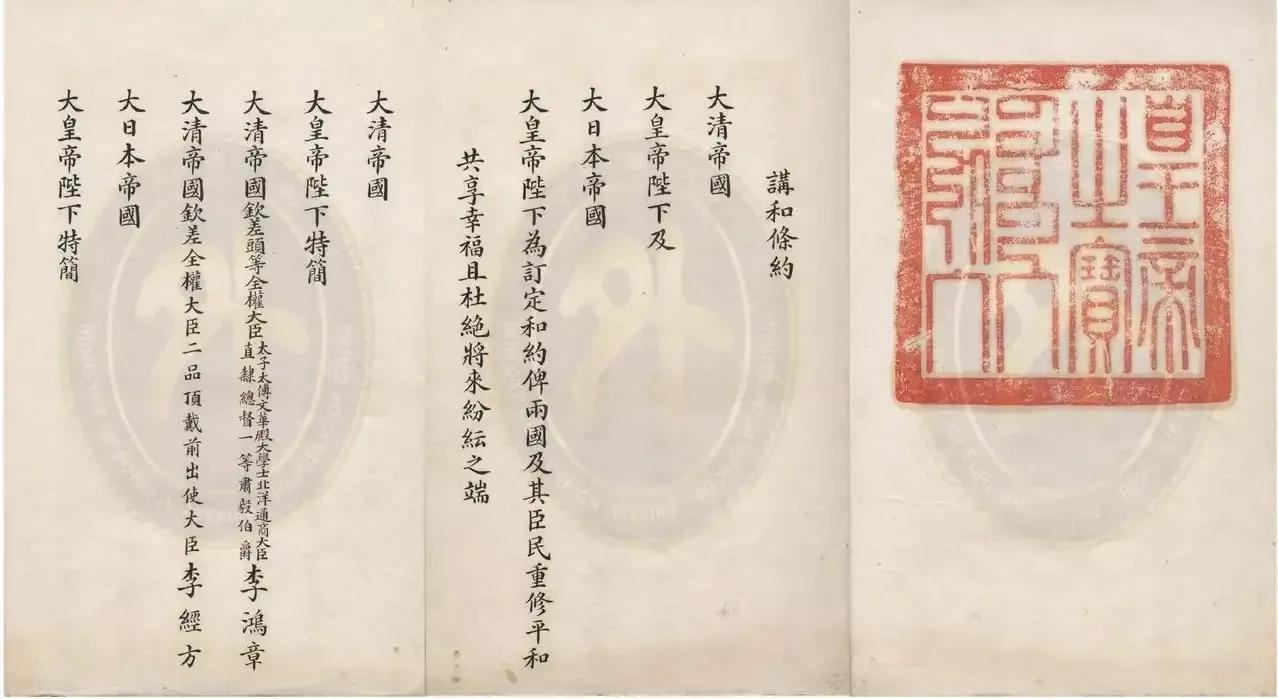 皇帝
之寶
講和條約
大清帝國
大皇帝陛下及
大日本帝國
大皇帝陛下為訂定和約俾兩國及其臣民重修平和
共享幸福且杜絕將來紛紜之端
大清帝國
大皇帝陛下特簡
大清帝國欽差頭等全權大臣太子太傅文華殿大學士北洋通商大臣直隸總督一等肅毅伯爵李鴻章
大清帝國欽差全權大臣二品頂戴前出使大臣李經方
大日本帝國
大皇帝陛下特簡